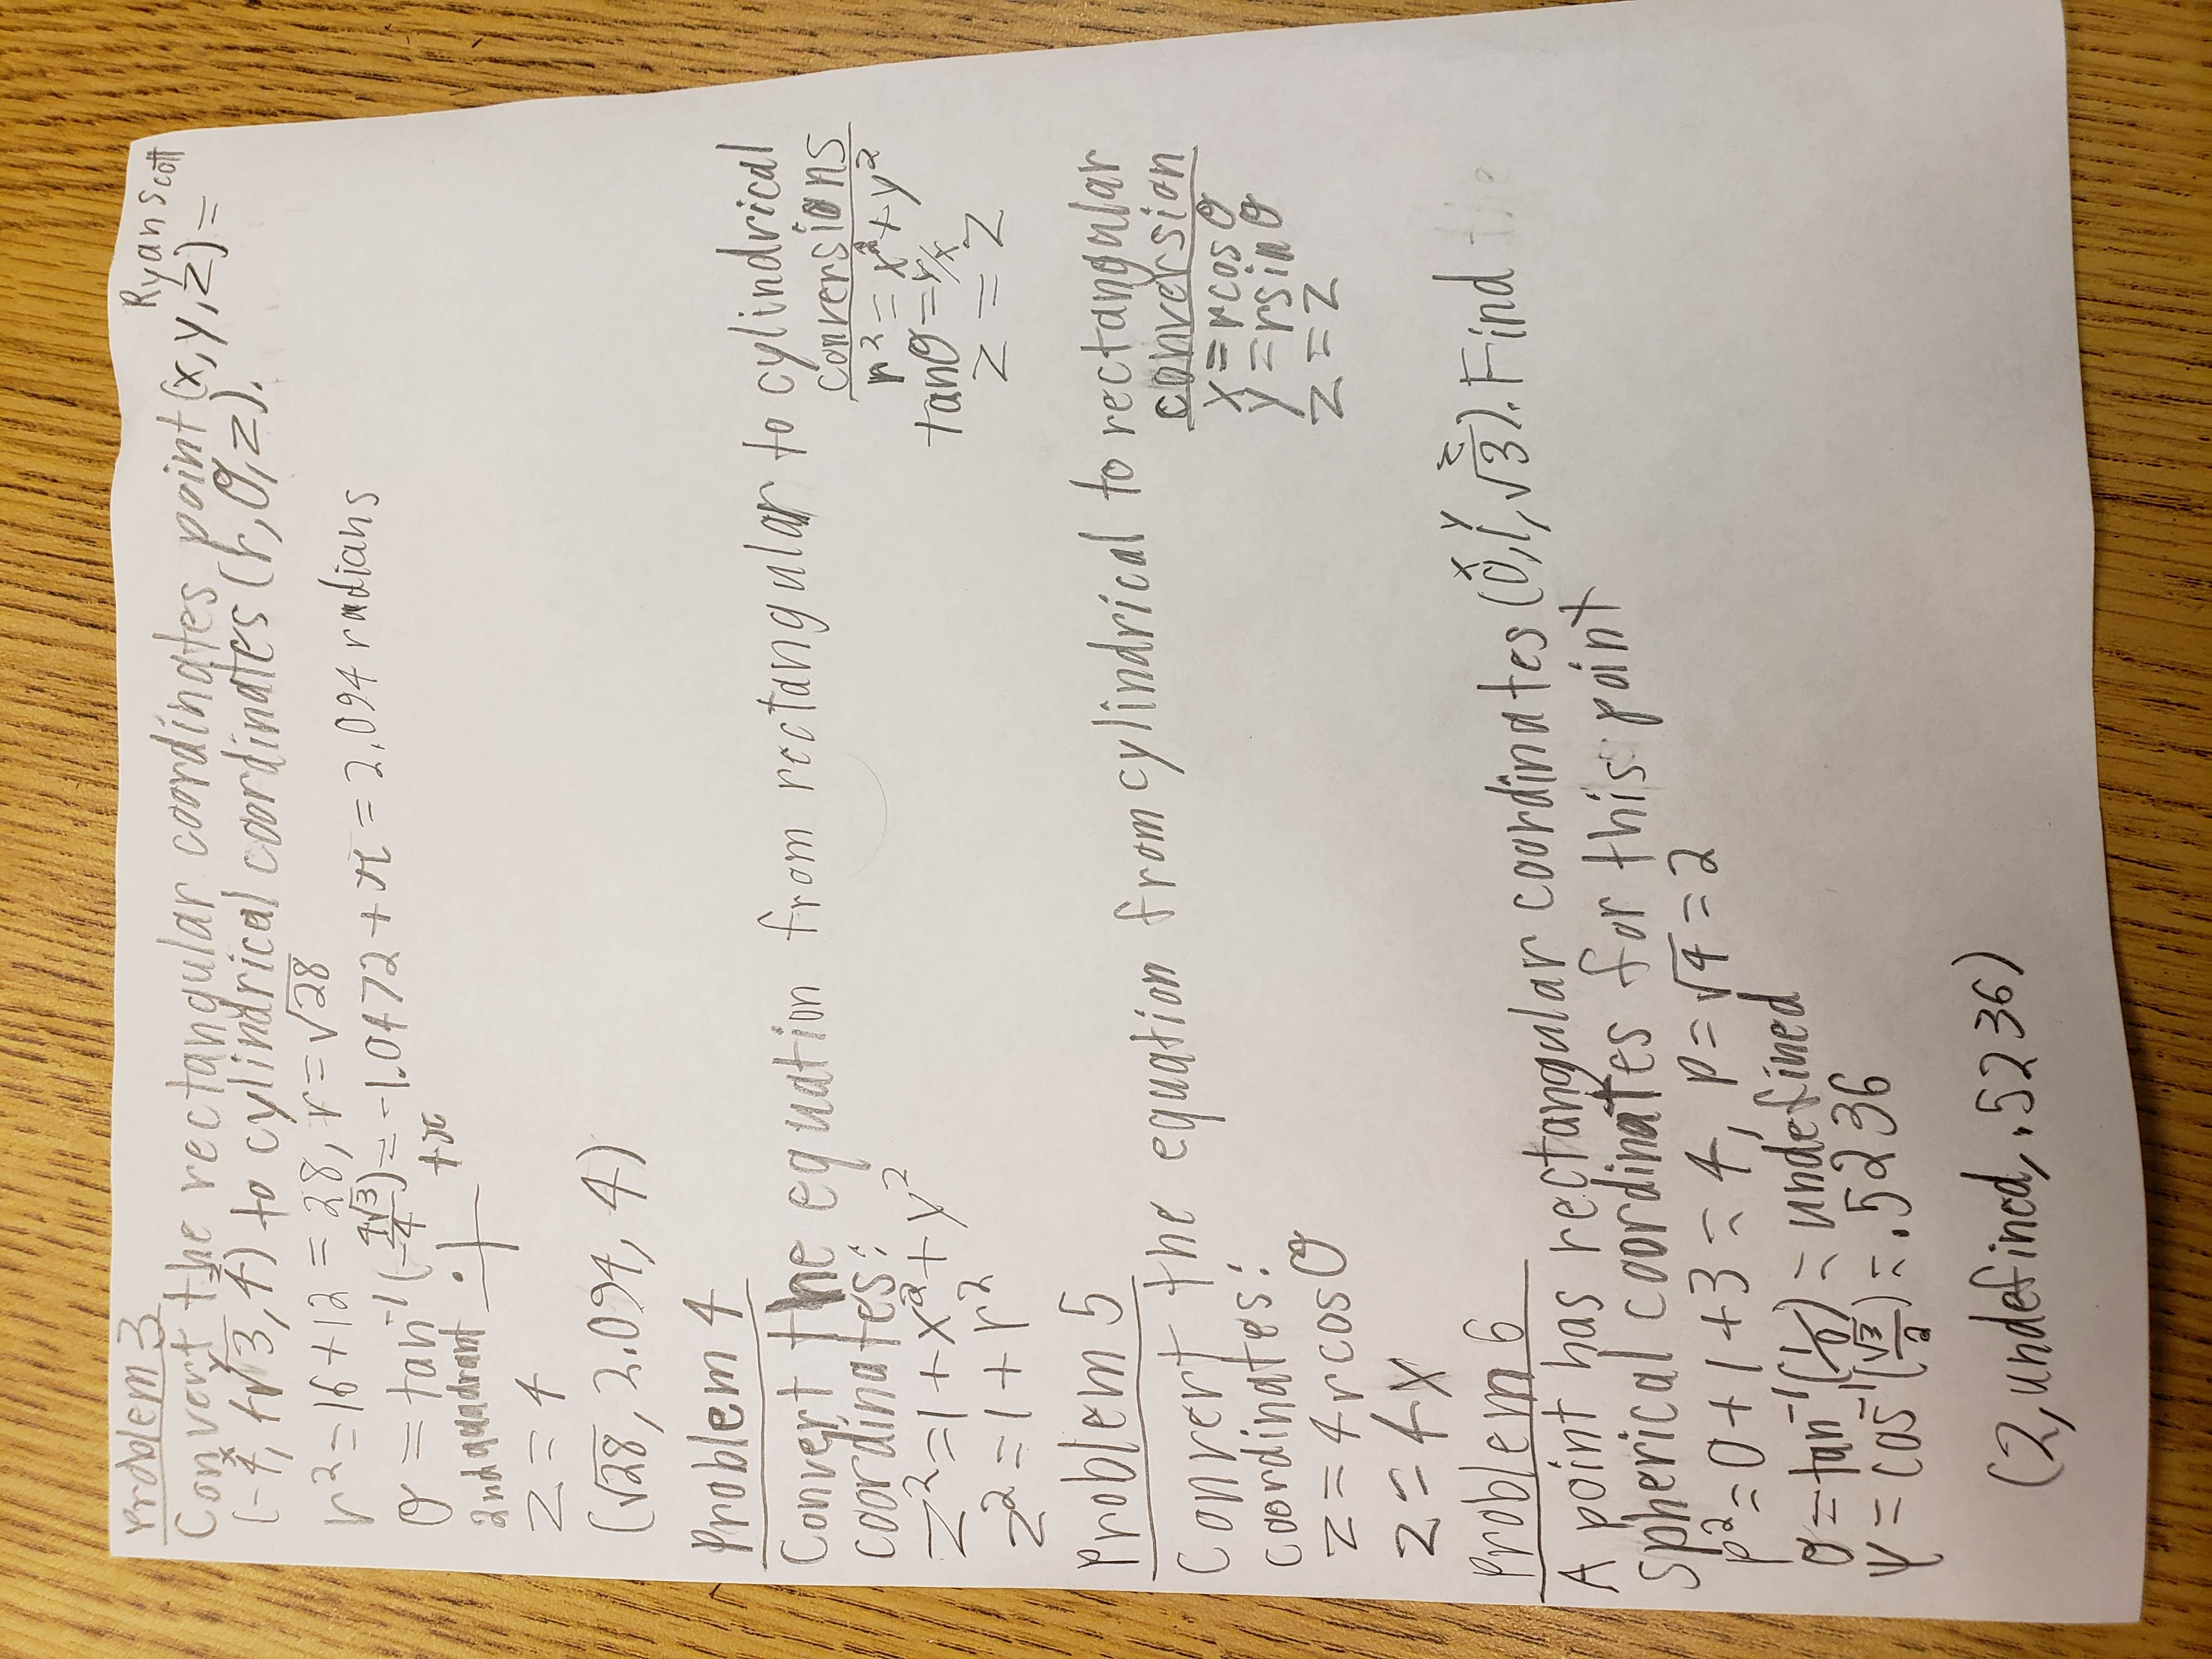 Ryan Scott
Problem 3
Convert the rectangular coordinates point (x,y,z)=
x y z
(-4, 4√3, 4) to cylindrical coordinates (r, θ, z).
r²=16+12=28, r=√28
θ = tan⁻¹(4√3/-4)= -1.0472 + π = 2.094 radians
+π
2nd quadrant
z = 4
(√28, 2.094, 4)
Problem 4
Convert the equation from rectangular to cylindrical
coordinates:
z²=1+x²+y²
z²=1+r²
conversions
r²=x²+y²
tanθ=y/x
z=z
Problem 5
Convert the equation from cylindrical to rectangular
coordinates:
z=4rcosθ
z=4x
conversion
x=rcosθ
y=rsinθ
z=z
Problem 6
x y z
A point has rectangular coordinates (0,1,√3). Find
spherical coordinates for this point
p²=0+1+3=4, p=√4=2
θ=tan⁻¹(1/0)=undefined
ψ=cos⁻¹(√3/2)=.5236
(2, undefined, .5236)